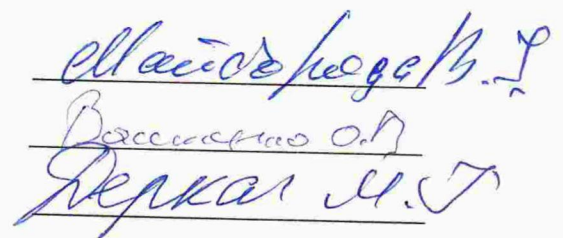 Майборода В. І
Вашченко О.В
Деркач М. І